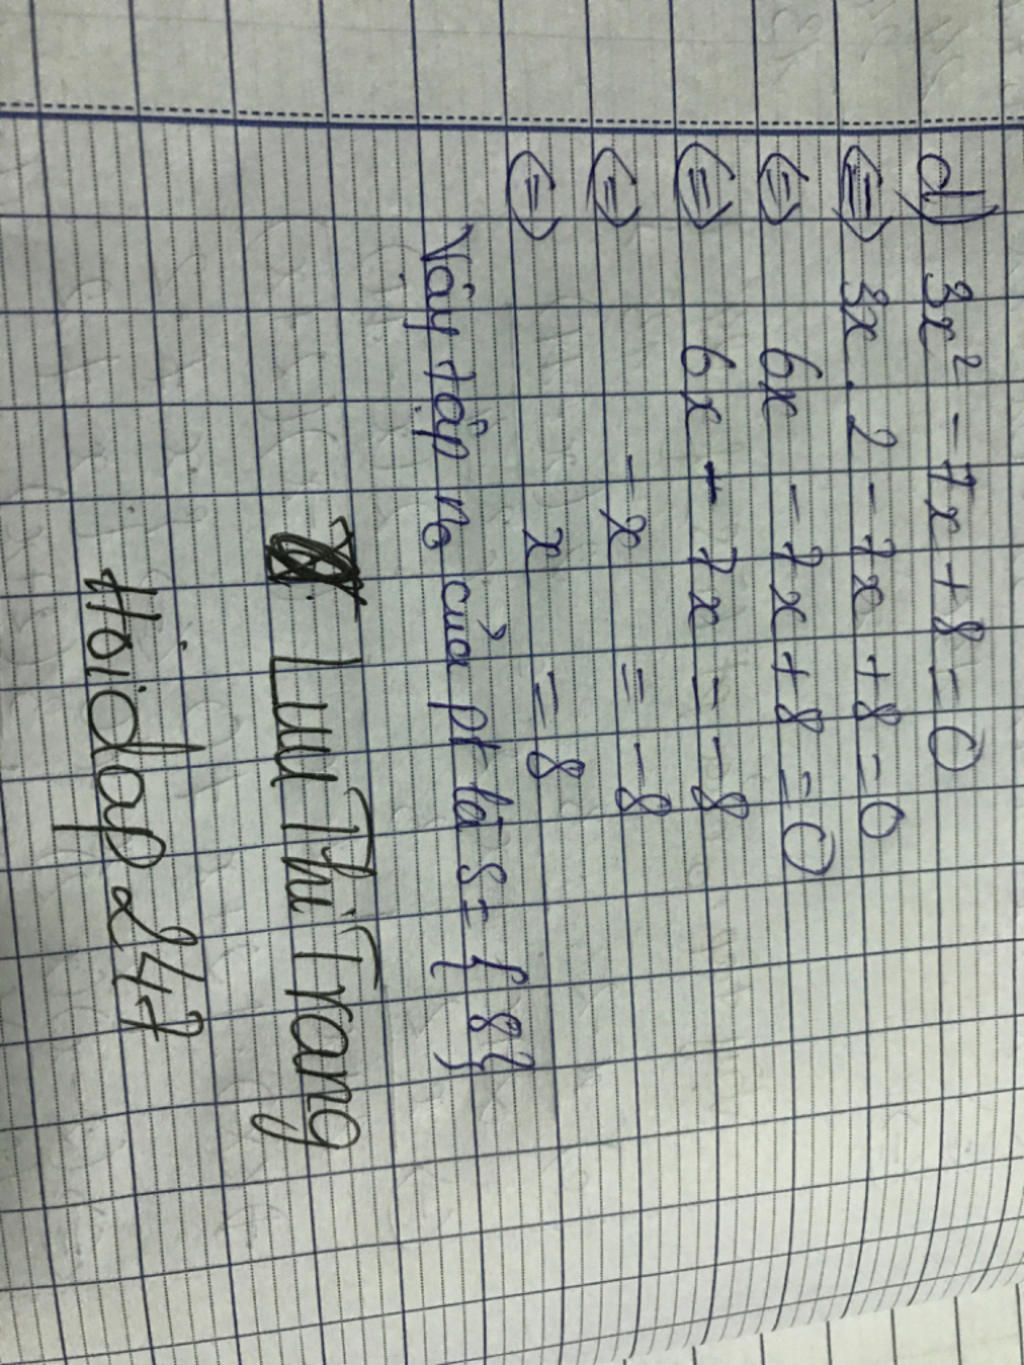 d) 3x² - 7x + 8 = 0
⇔ 3x . 2 - 7x + 8 = 0
⇔ 6x - 7x + 8 = 0
⇔ 6x - 7x = -8
⇔ - x = -8
⇔ x = 8
Vậy tập n₀ của pt là S = { 8 }
Lưu Thị Trang
Hoidap247